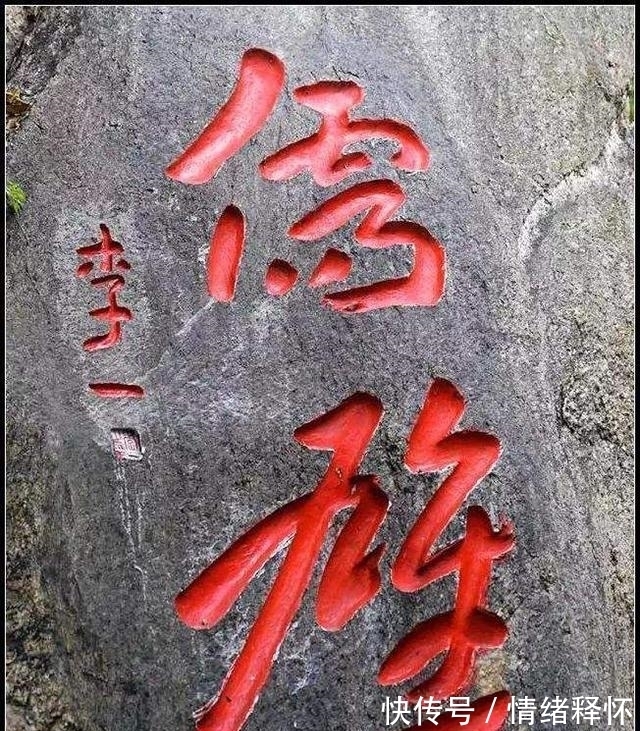 儒雅
李一
快传号 / 情绪释怀